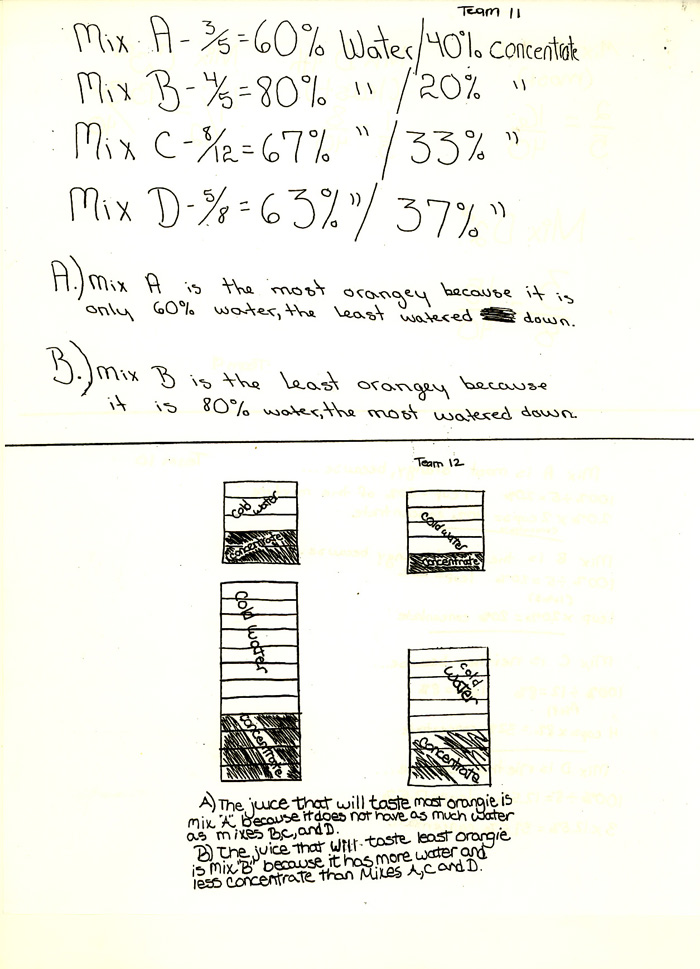 Team 11
Mix A - 3/5 = 60% Water/40% concentrate
Mix B - 4/5 = 80% " /20% "
Mix C - 8/12 = 67% " /33% "
Mix D - 5/8 = 63% " / 37% "
A.) Mix A is the most orangey because it is
only 60% water, the least watered down.
B.) Mix B is the least orangey because
it is 80% water, the most watered down.
Team 12
cold water
concentrate
cold water
concentrate
cold water
concentrate
cold water
concentrate
A) The juice that will taste most orangie is
mix "A" because it does not have as much water
as mixes B,C, and D.
B) The juice that will taste least orangie
is Mix "B" because it has more water and
less concentrate than Mixes A, C and D.